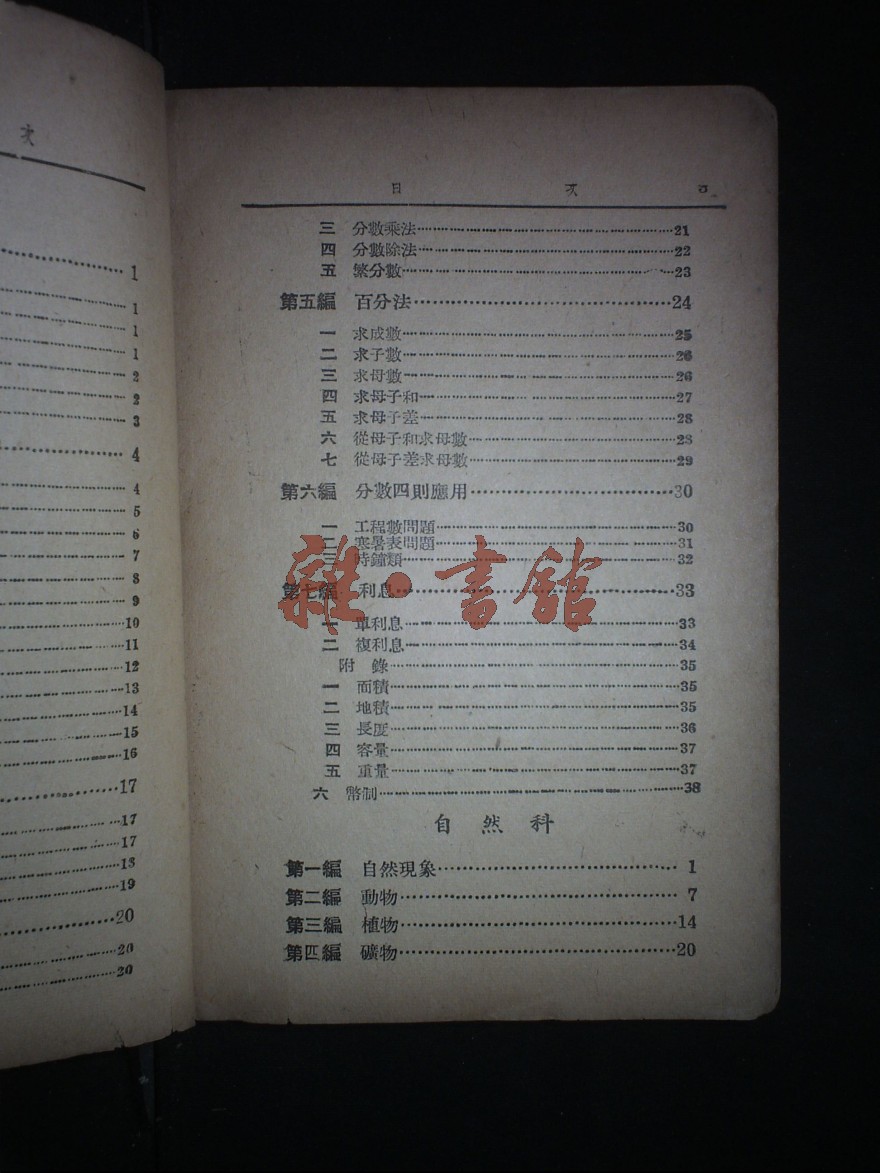 次
1
1
1
1
2
2
3
4
4
5
6
7
8
9
10
11
12
13
14
15
16
17
17
17
18
19
20
20
20
目 次
三 分數乘法 21
四 分數除法 22
五 繁分數 23
第五編 百分法 24
一 求成數 25
二 求子數 26
三 求母數 26
四 求母子和 27
五 求母子差 28
六 從母子和求母數 28
七 從母子差求母數 29
第六編 分數四則應用 30
一 工程數問題 30
二 寒暑表問題 31
三 時鐘類 32
雜·書館
第七編 利息 33
一 單利息 33
二 複利息 34
附錄 35
一 面積 35
二 地積 35
三 長度 36
四 容量 37
五 重量 37
六 幣制 38
自然科
第一編 自然現象 1
第二編 動物 7
第三編 植物 14
第四編 礦物 20